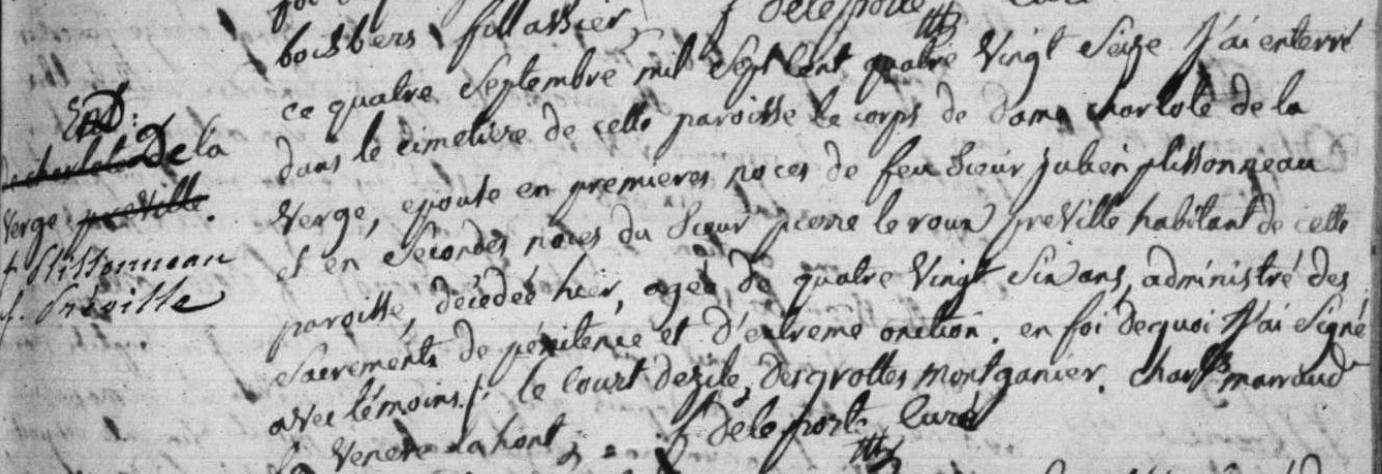 boisbers fillassier
f delaporte curé
E.D:
charlot De la
Verge preville.
f. Plissonneau
f. Préville
ce quatre Septembre mil Sept Cent quatre Vingt Seize J'ai enterré
dans le cimetiere de cette paroisse le corps de dame charlote de la
Verge, epouse en premieres noces de feu Sieur julien plissonneau
et en Secondes noces du Sieur pierre leroux preville habitant de cette
paroisse, décedée hier, agée de quatre Vingt Six ans, administré des
Sacrements de pénitence et d'extreme onction. en foi dequoi J'ai Signé
avec témoins. le Court dezile, desgrottes montganier. marraud
Lahont
f delaporte Curé